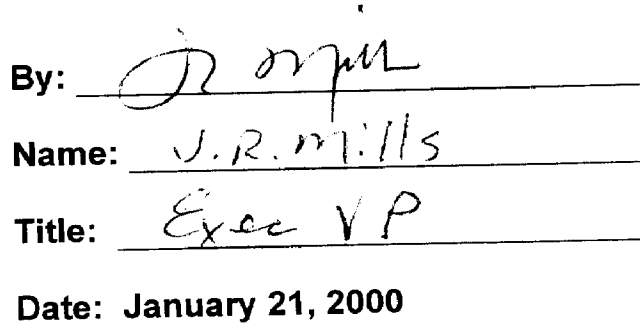 By: JR Mills
Name: J.R. Mills
Title: Exec VP
Date: January 21, 2000